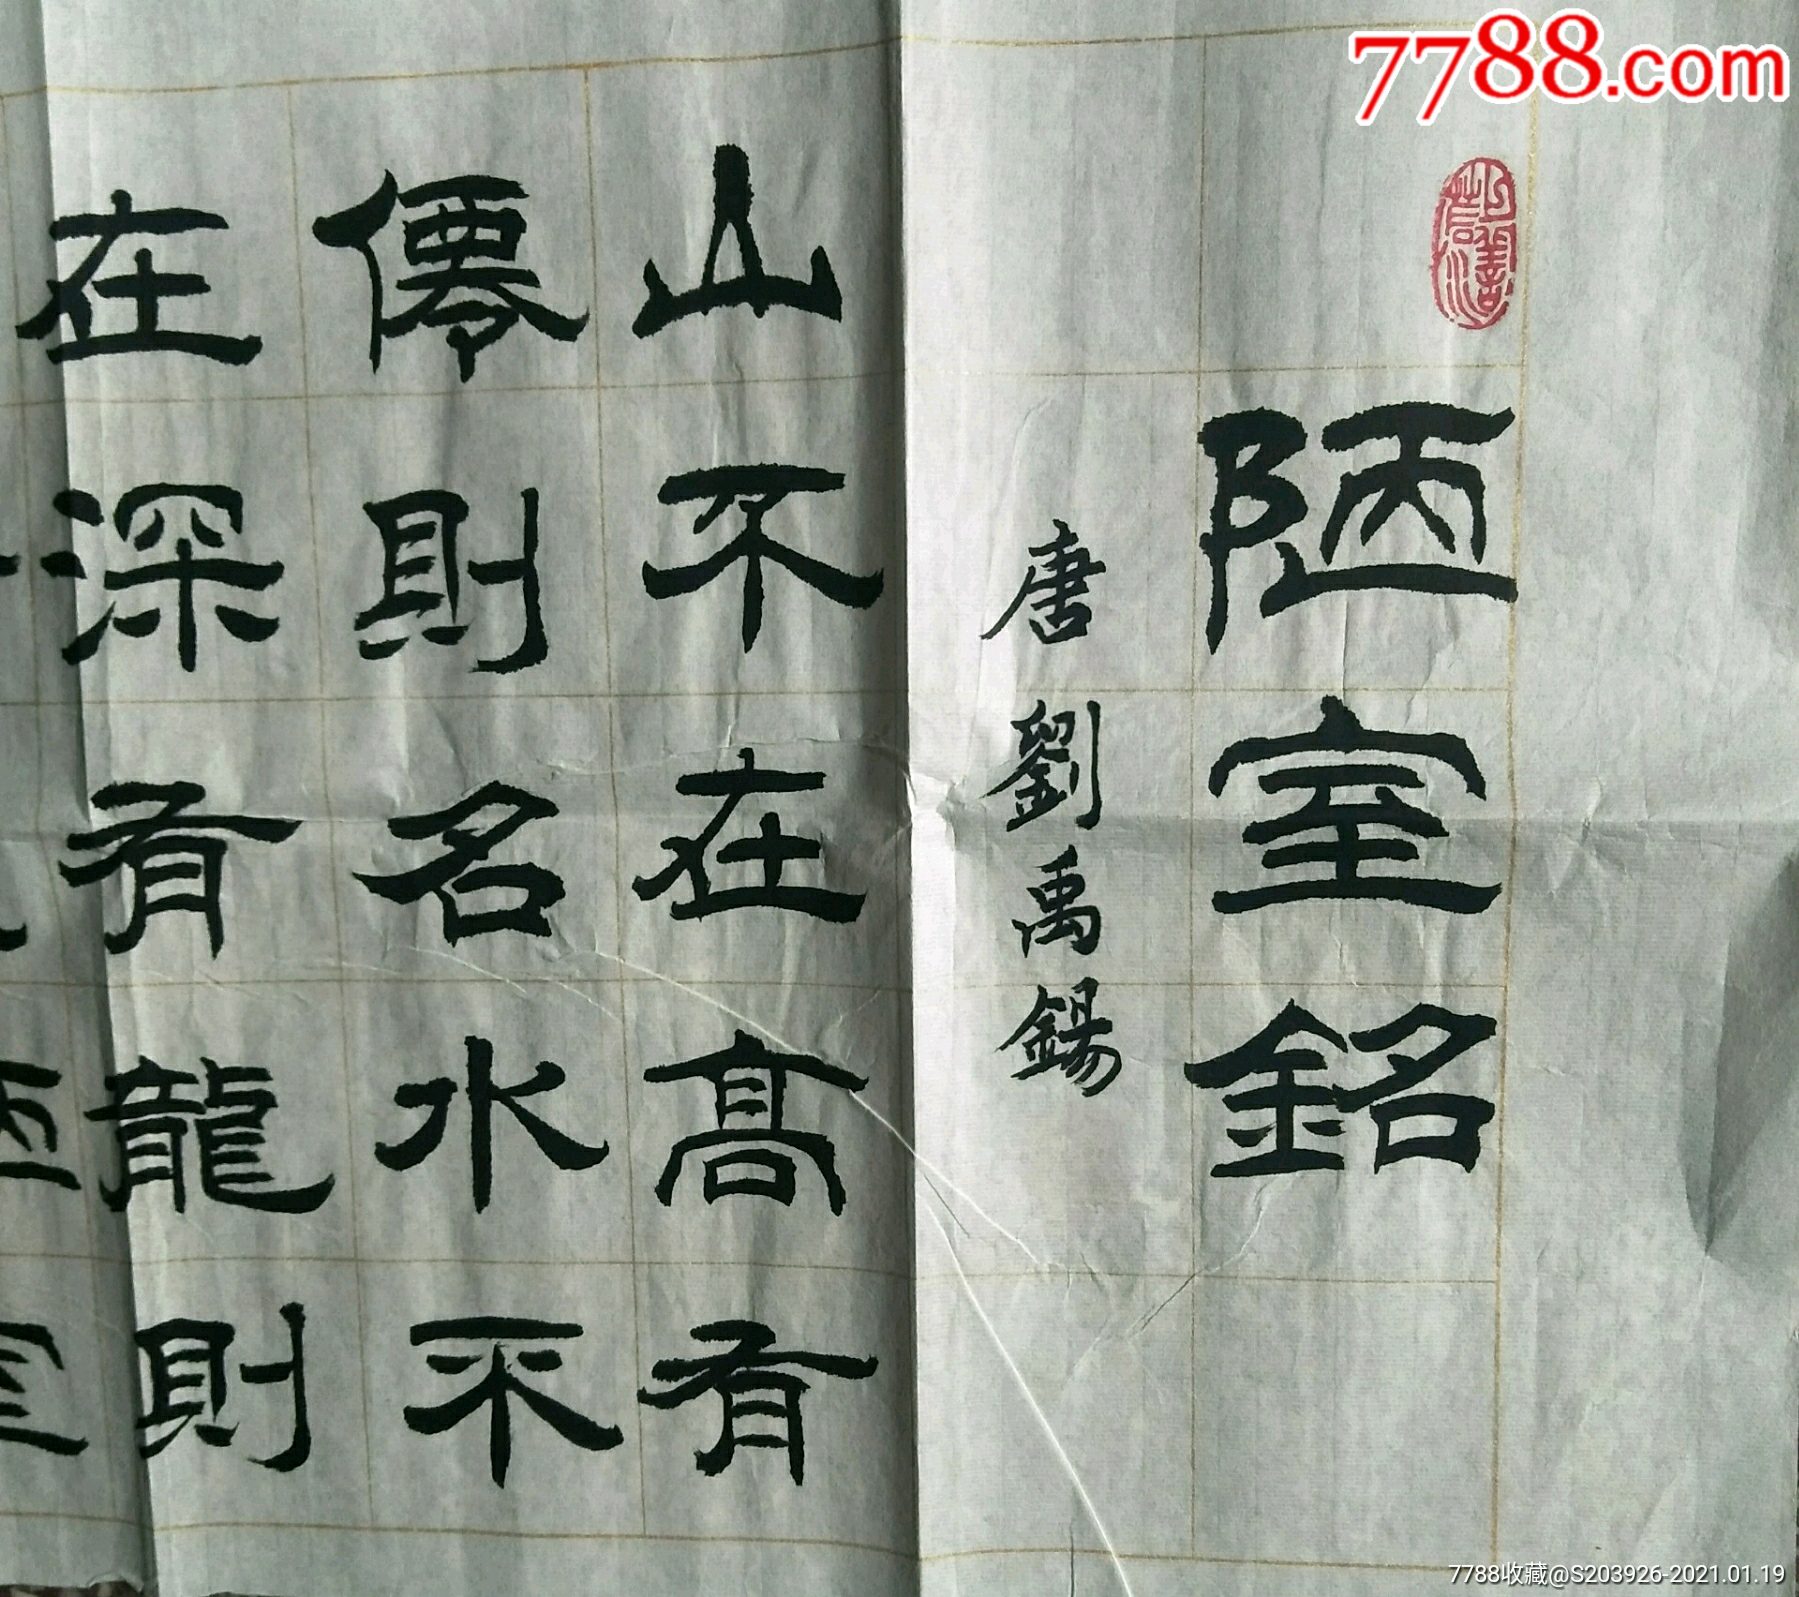 7788.com
陋室銘
唐劉禹錫
山不在高有
僊則名水不
在深有龍則
7788收藏@S203926-2021.01.19